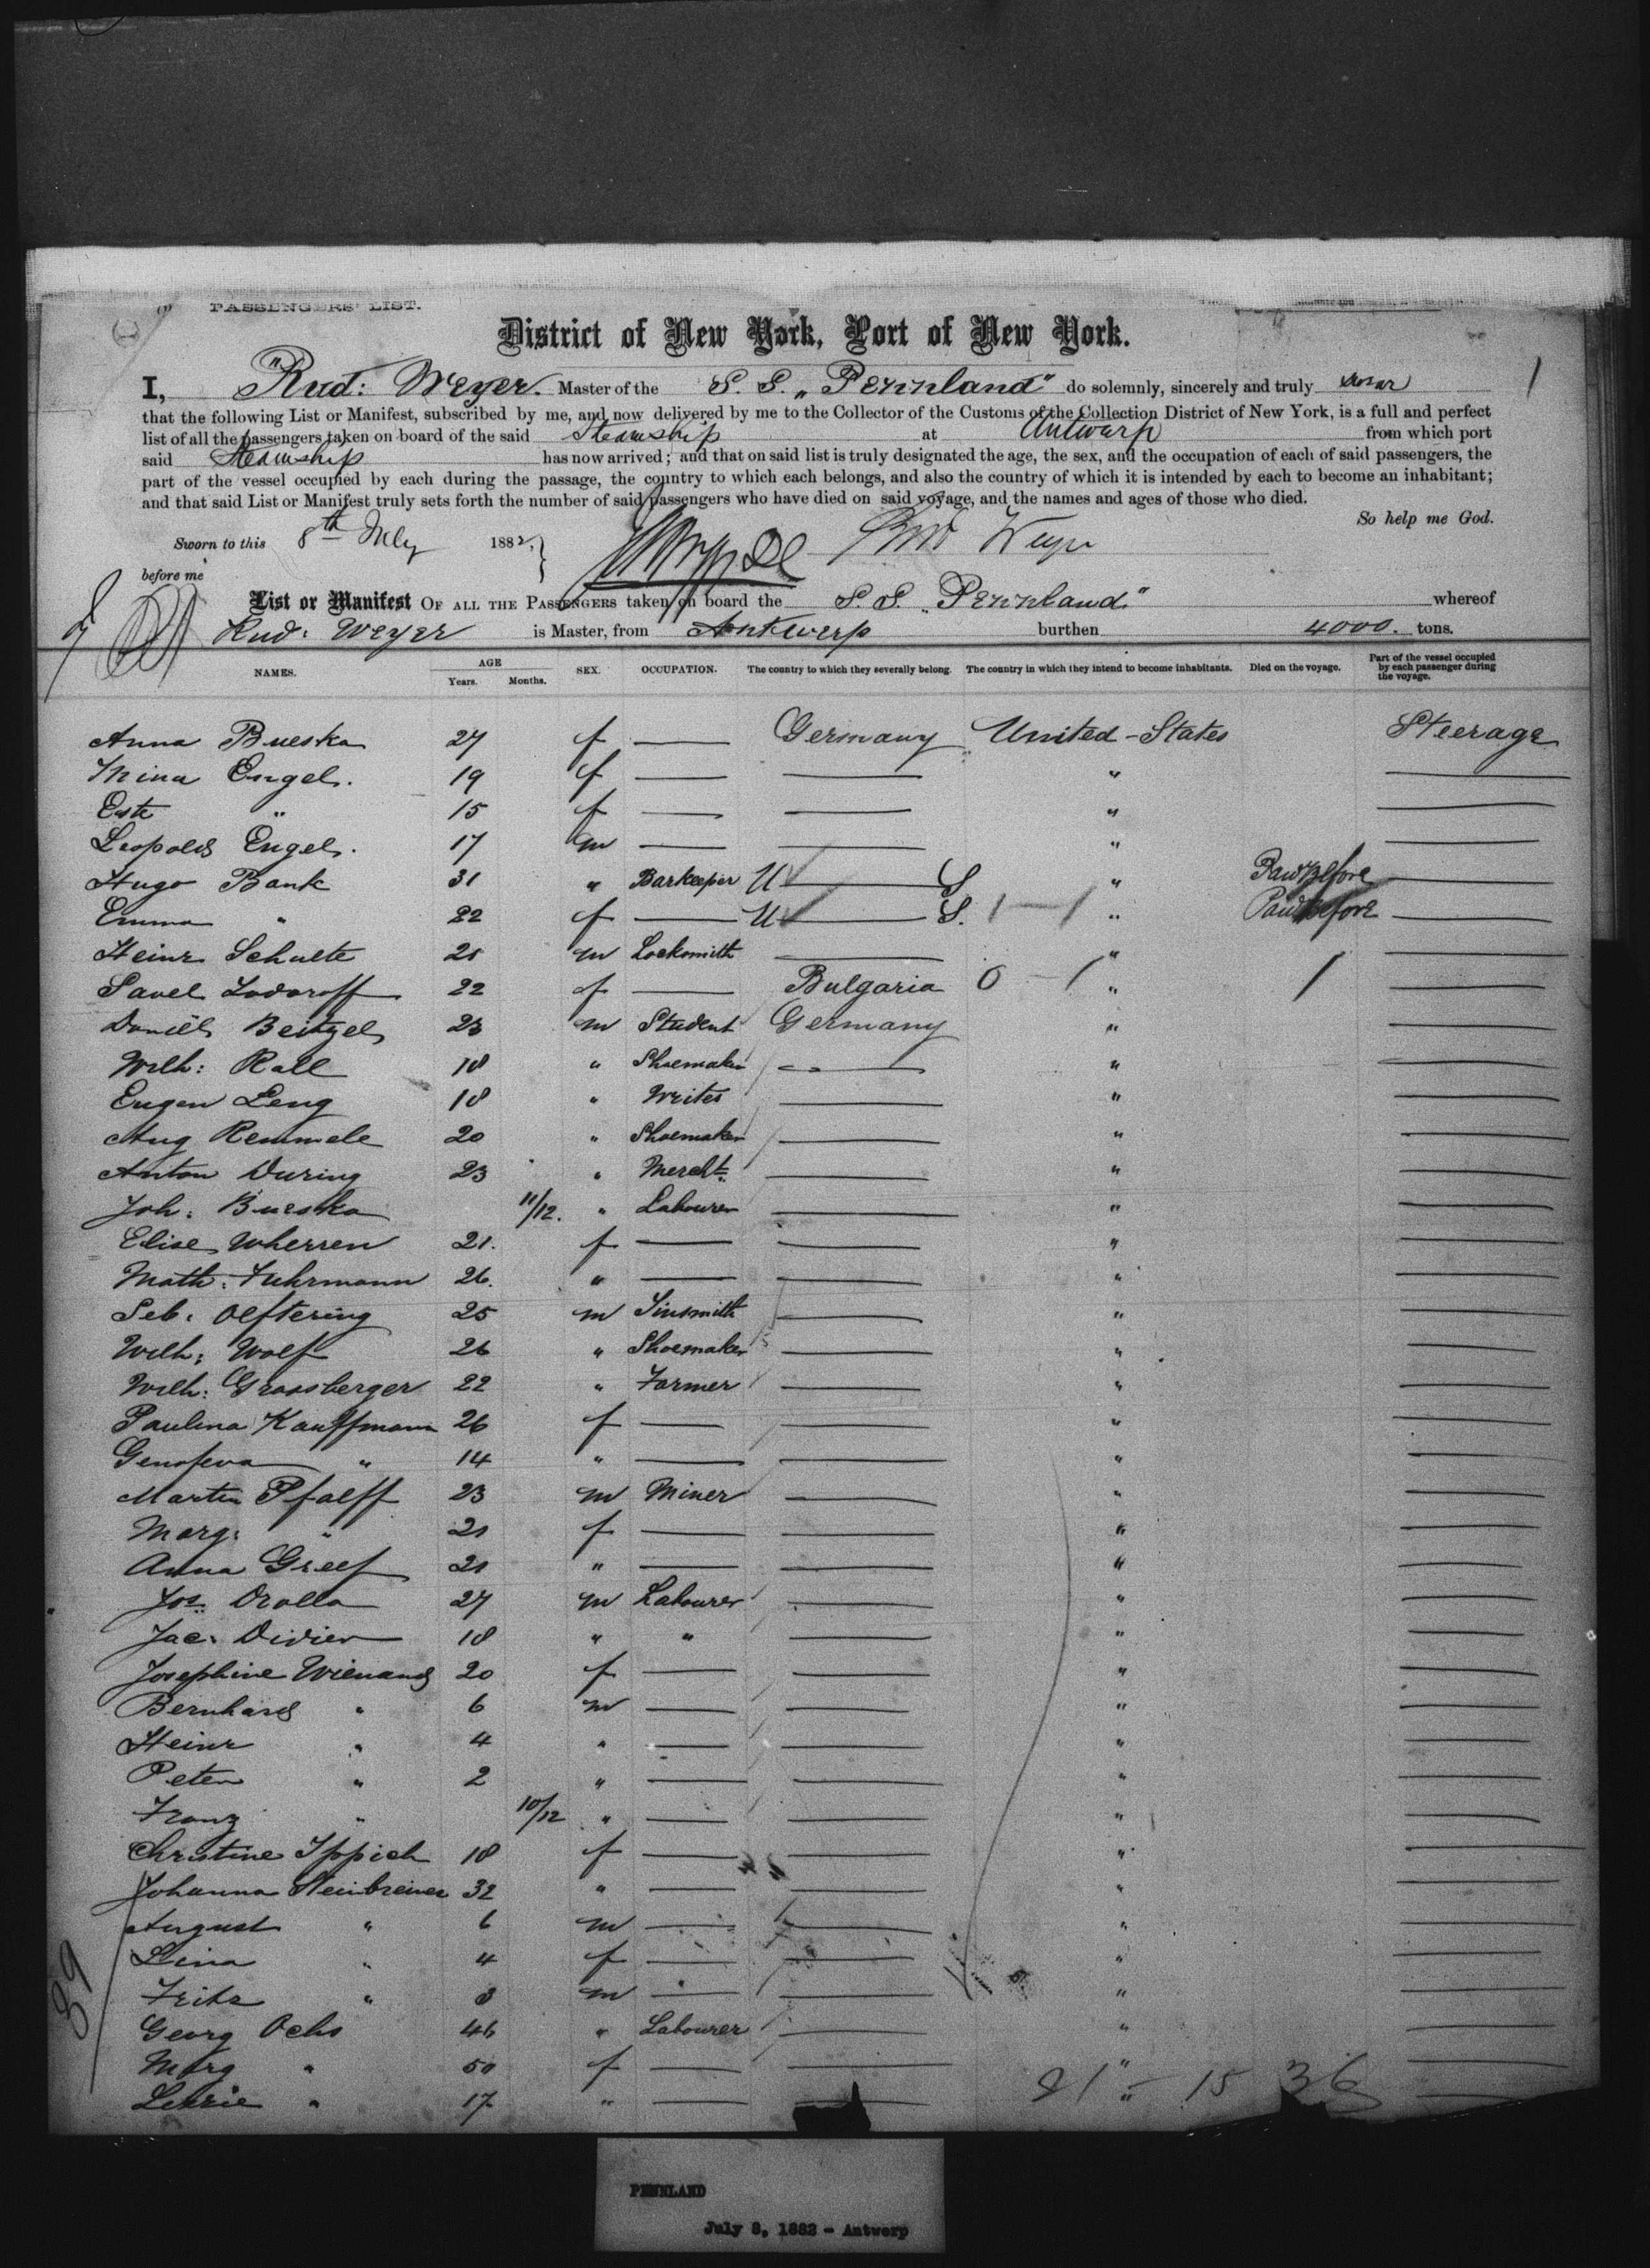 PASSENGERS' LIST.
District of New York, Port of New York.
1
I, Rud: Weyer. Master of the S. S. „Pennland" do solemnly, sincerely and truly swear
that the following List or Manifest, subscribed by me, and now delivered by me to the Collector of the Customs of the Collection District of New York, is a full and perfect
list of all the passengers taken on board of the said Steamship at Antwerp from which port
said Steamship has now arrived; and that on said list is truly designated the age, the sex, and the occupation of each of said passengers, the
part of the vessel occupied by each during the passage, the country to which each belongs, and also the country of which it is intended by each to become an inhabitant;
and that said List or Manifest truly sets forth the number of said passengers who have died on said voyage, and the names and ages of those who died.
So help me God.
Sworn to this 8th July 1882, Rud Weyer
before me
List or Manifest OF ALL THE PASSENGERS taken on board the S. S. „Pennland" whereof
Rud: Weyer is Master, from Antwerp burthen 4000. tons.
NAMES. AGE Years. Months. SEX. OCCUPATION. The country to which they severally belong. The country in which they intend to become inhabitants. Died on the voyage. Part of the vessel occupied by each passenger during the voyage.
Anna Bueska 27 f — Germany United-States Steerage
Mina Engel. 19 f — — " —
" 15 f — — " —
Leopold Engel. 17 m — — " —
Hugo Bank 31 " Barkeeper U — S " Paid Before —
Emma " 22 f — U — S. 1 — 1 " Paid Before —
Heinr Schulte 21 m Locksmith — " —
Savel Todoroff 22 f — Bulgaria 0 — 1 " 1 —
Daniël Beitzel 23 m Student Germany " —
Wilh: Rall 18 " Shoemaker — " —
Eugen Leng 18 " Writer — " —
Aug Remmele 20 " Shoemaker — " —
Anton During 23 " Mercht. — " —
Joh: Bueska 11/12. " Labourer — " —
Elise Wherren 21. f — — " —
Math: Fuhrmann 26. " — — " —
Seb: Oeftering 25 m Tinsmith — " —
Wilh: Wolf 26 " Shoemaker — " —
Wilh: Grossberger 22 " Farmer — " —
Paulina Kauffmann 26 f — — " —
Genofeva " 14 " — — " —
Martin Pfalff 23 m Miner — " —
Marg: " 21 f — — " —
Anna Greef 21 " — — " —
Jos: Drolla 27 m Labourer — " —
Jac: Didier 18 " " — " —
Josephine Wienand 20 f — — " —
Bernhard " 6 m — — " —
Heinr " 4 " — — " —
Peter " 2 " — — " —
Franz " 10/12 " — — " —
Christine Ippich 18 f — — " —
Johanna Steinbreiner 32 " — — " —
August " 6 m — — " —
Lina " 4 f — — " —
Fritz " 3 m — — " —
Georg Ochs 46 " Labourer — " —
Marg " 50 f — — " —
" 17 " — — " —
89
21 - 15 36
PENNLAND
July 8, 1882 - Antwerp